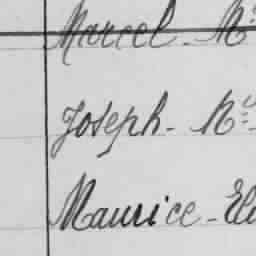 Marcel - M
Joseph - N
Maurice - El